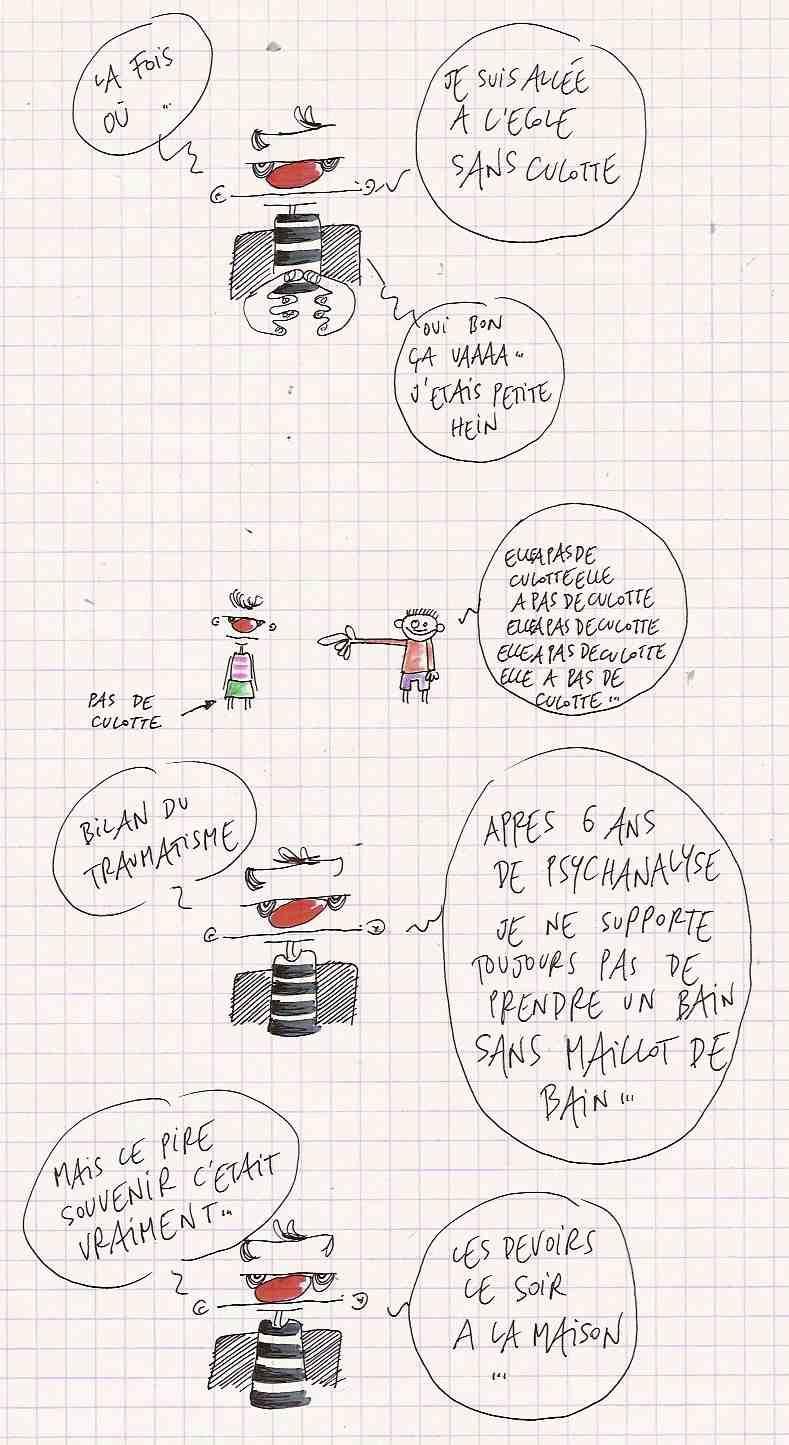 LA FOIS
OÙ ...
JE SUIS ALLÉE
A L'ECOLE
SANS CULOTTE
OUI BON
ÇA VAAAA...
J'ETAIS PETITE
HEIN
ELLE A PAS DE
CULOTTE ELLE
A PAS DE CULOTTE
ELLE A PAS DE CULOTTE
ELLE A PAS DE CULOTTE
ELLE A PAS DE
CULOTTE...
PAS DE
CULOTTE
BILAN DU
TRAUMATISME
APPRES 6 ANS
DE PSYCHANALYSE
JE NE SUPPORTE
TOUJOURS PAS DE
PRENDRE UN BAIN
SANS MAILLOT DE
BAIN...
MAIS LE PIRE
SOUVENIR C'ETAIT
VRAIMENT...
LES DEVOIRS
LE SOIR
A LA MAISON
...